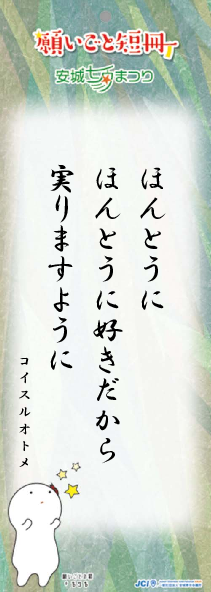 願いごと短冊
安城七夕まつり
ほんとうに
ほんとうに好きだから
実りますように
コイスルオトメ
JCI